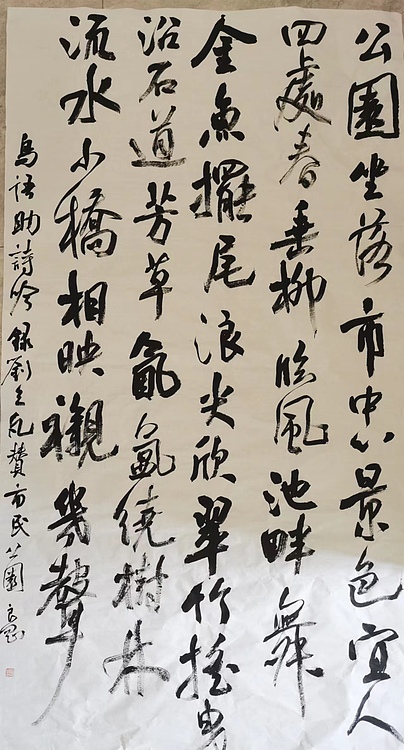 公園坐落市中心景色宜人
四處春垂柳臨風池畔舞
金魚擺尾浪尖欣翠竹搖曳
沿石道芳草氤氳繞樹林
流水小橋相映襯幾聲
鳥語助詩吟錄劉凡贊市民公園